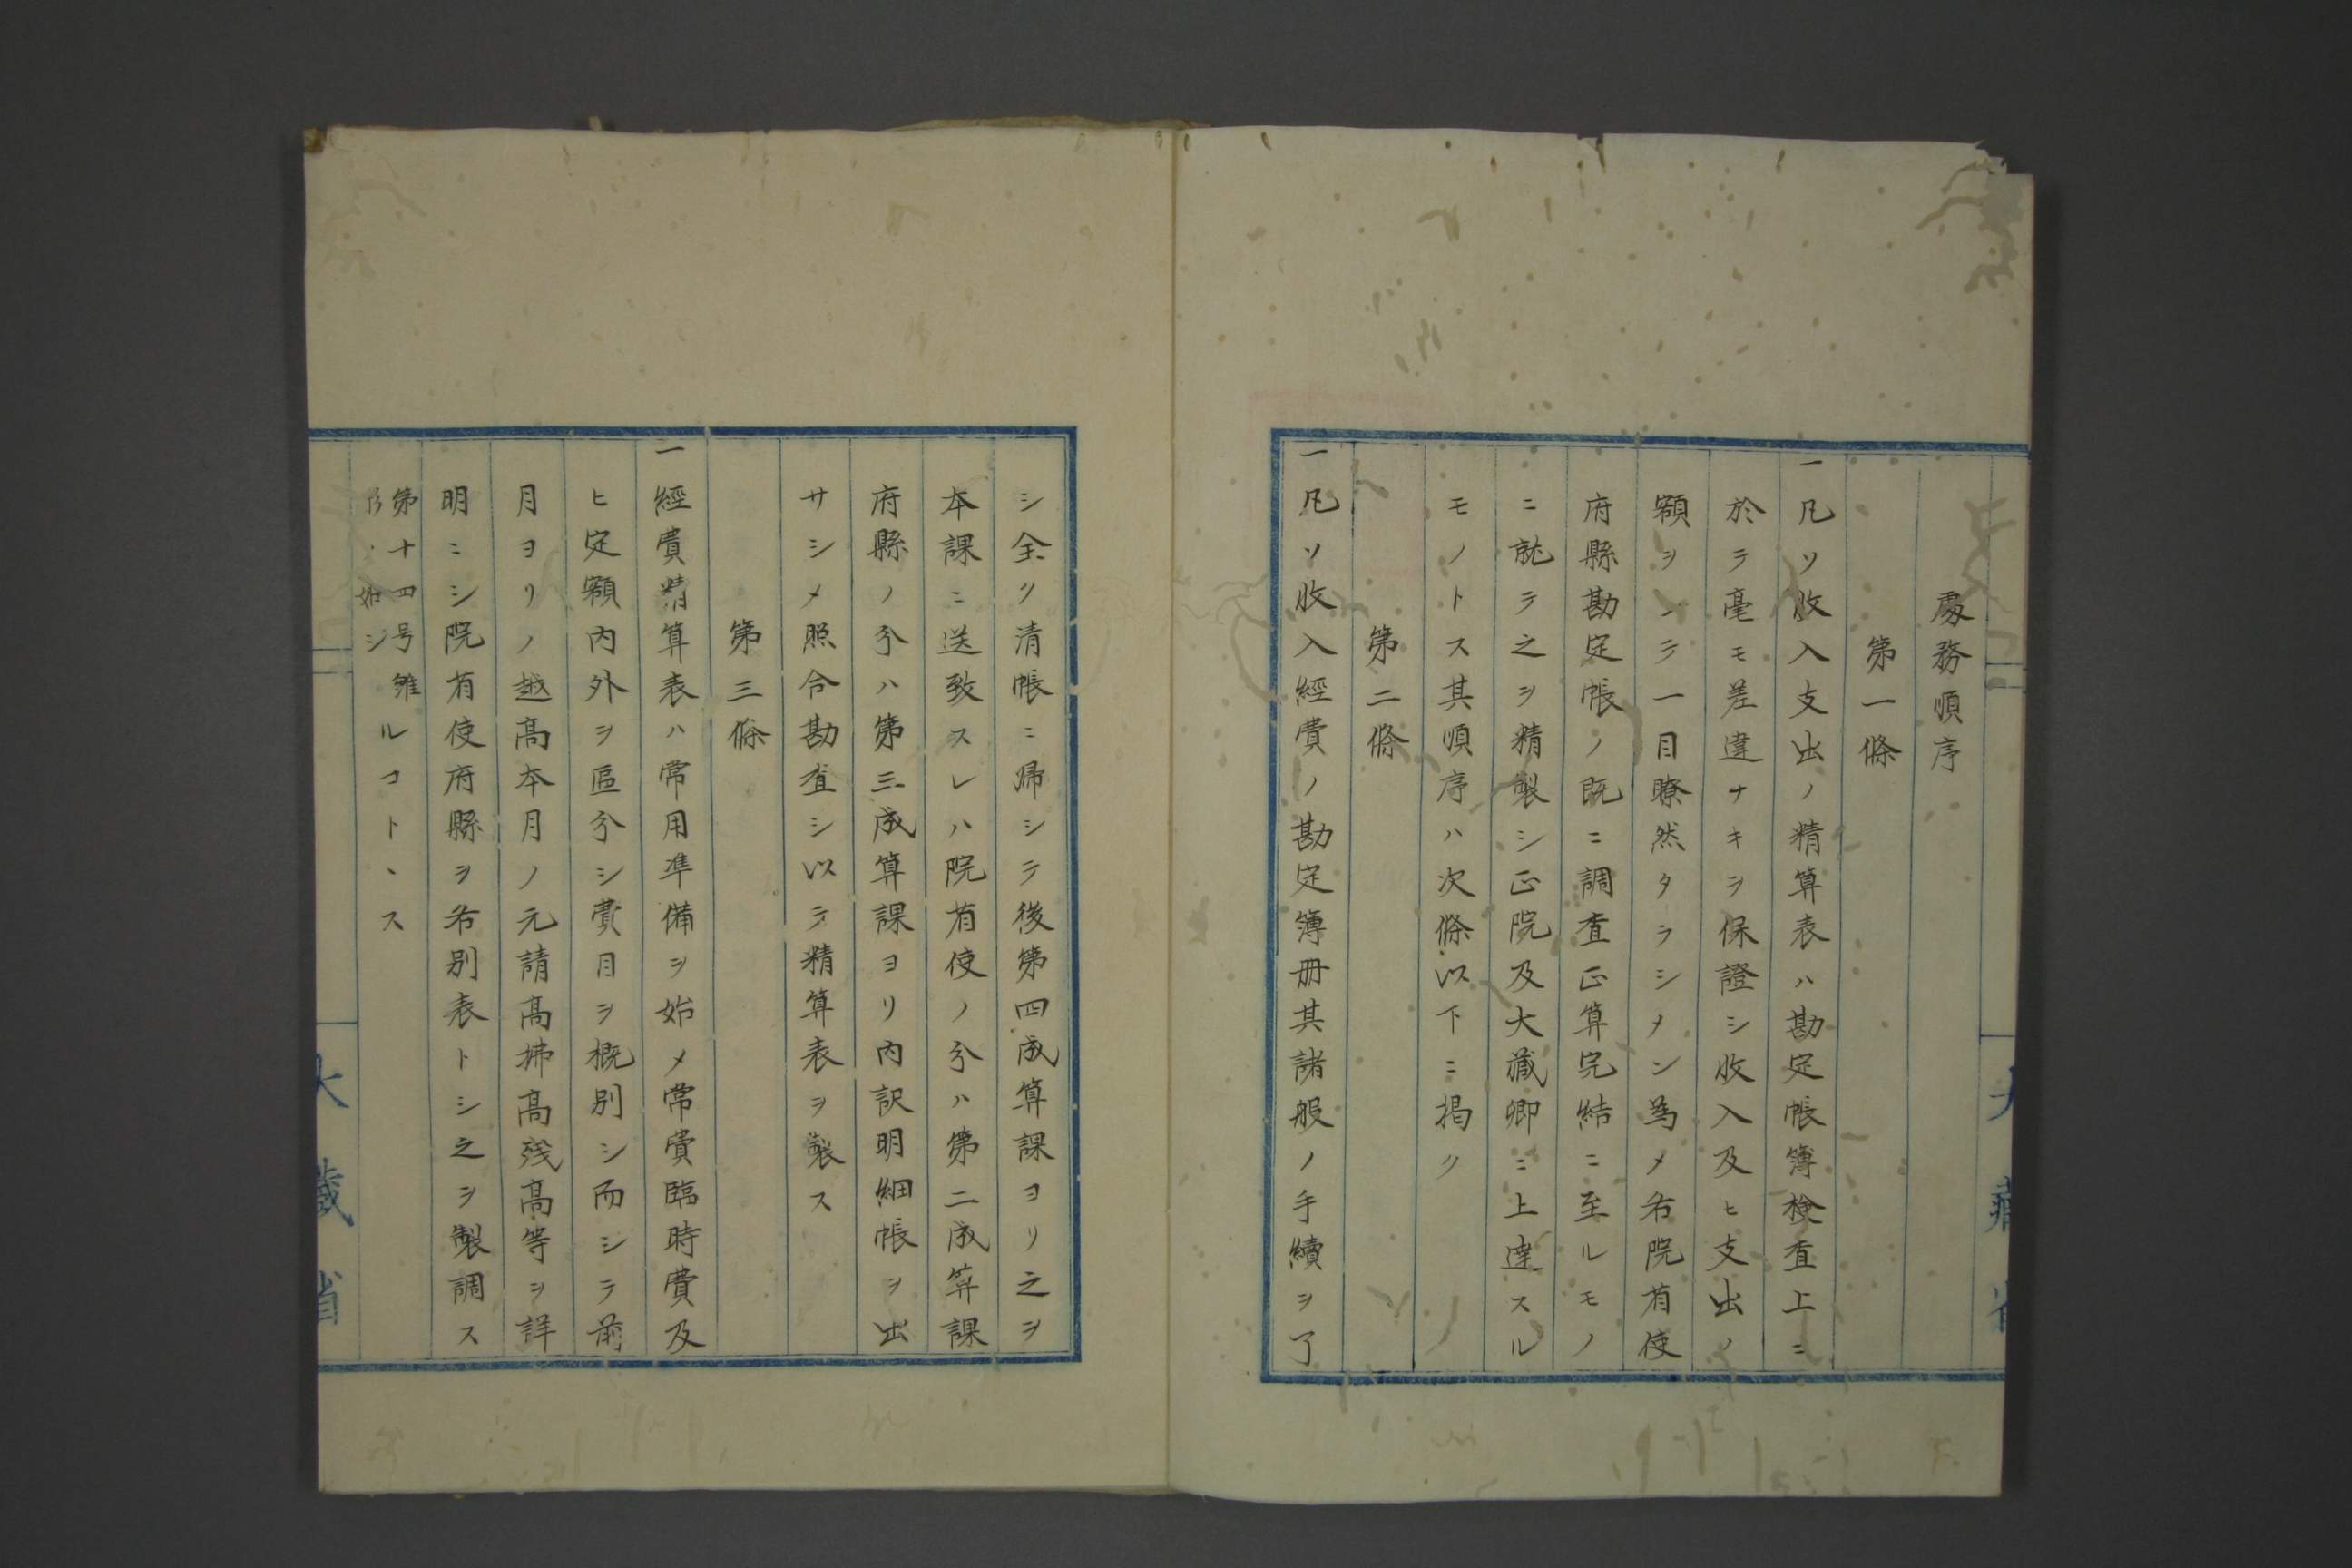 處務順序
第一條
一凡ソ收入支出ノ精算表ハ勘定帳簿檢査上ニ
於テ毫モ差違ナキヲ保證シ收入及ヒ支出ノ
額ヲシテ一目瞭然タラシメン為メ各院省使
府縣勘定帳ノ既ニ調査正算完結ニ至ルモノ
ニ就テ之ヲ精製シ正院及大藏卿ニ上達スル
モノトス其順序ハ次條以下ニ掲ク
第二條
一凡ソ收入經費ノ勘定簿册其諸般ノ手續ヲ了
シ全ク清帳ニ歸シテ後第四成算課ヨリ之ヲ
本課ニ送致スレハ院省使ノ分ハ第二成算課
府縣ノ分ハ第三成算課ヨリ内訳明細帳ヲ出
サシメ照合勘査シ以テ精算表ヲ製ス
第三條
一經費精算表ハ常用準備ヲ始メ常費臨時費及
ヒ定額内外ヲ區分シ費目ヲ概別シ而シテ前
月ヨリノ越高本月ノ元請高拂高殘高等ヲ詳
明ニシ院省使府縣ヲ各別表トシ之ヲ製調ス
ルコト、ス
第十四号雛
形ノ如シ
大藏省
大藏省